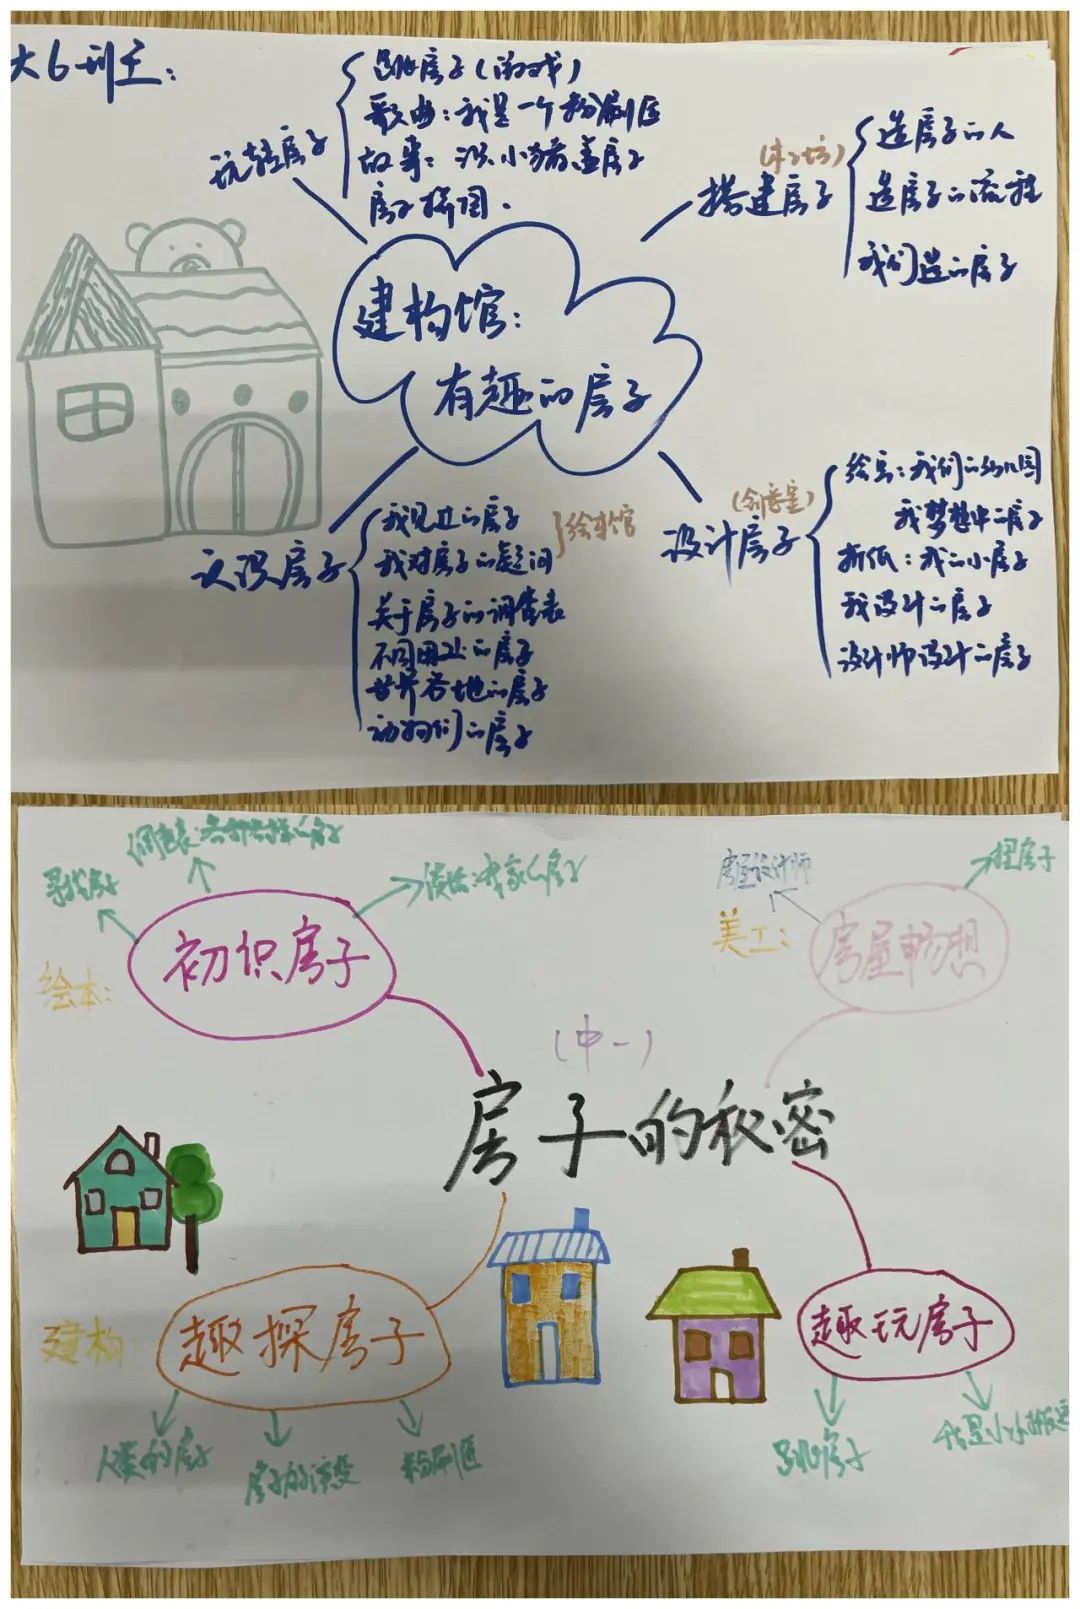 大6班主:
玩转房子
跳房子(游戏)
歌曲:我是一个粉刷匠
故事:三只小猪盖房子
房子拼图.
(木工坊)
搭建房子
造房子的人
造房子的流程
我们造的房子
建构馆:
有趣的房子
认识房子
我见过的房子
我对房子的疑问
绘本馆
关于房子的调查表
不同用处的房子
世界各地的房子
动物们的房子
设计房子
绘画:我们的幼儿园
我梦想中的房子
折纸:我的小房子
我设计的房子
设计师设计的房子
寻找房子
调查表:各种各样的房子
谈话:我家的房子
绘本:
初识房子
房屋设计师
捏房子
美工:
房屋畅想
(中一)
房子的秘密
建构:
趣探房子
人类的房子
房子的演变
粉刷匠
趣玩房子
跳房子